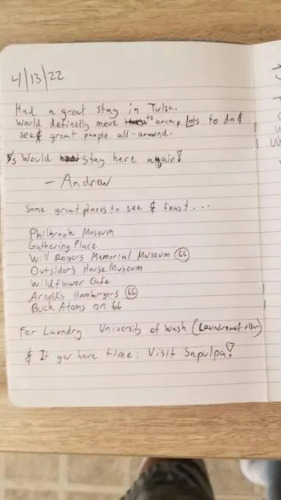 4/13/22
Had a great stay in Tulsa.
Would definetly move to Lots to do &
see & great people all-around.
5/5 Would stay here again!
- Andrew
Some great places to see & feast...
Philbrook Museum
Gathering Place
Will Rogers Memorial Museum 66
Outsiders House Museum
Wildflower Cafe
Arnold's Hamburgers 66
Buck Atoms on 66
For Laundry University of Wash (Laundromat
& If you have time: Visit Sapulpa!